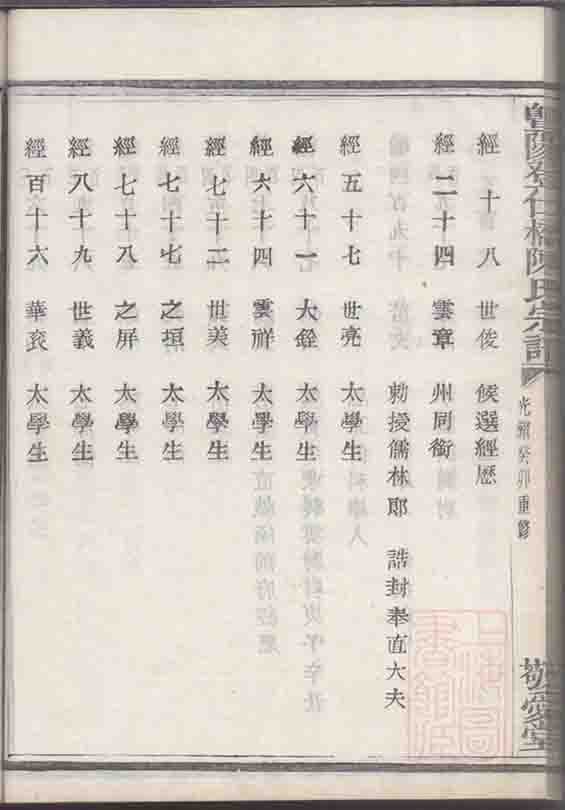 陳氏宗譜
光緒癸卯重修
敬愛堂
經十八 世俊 候選經歷
經二十四 雲章 州同銜
勅授儒林郎 誥封奉直大夫
經五十七 世亮 太學生
經六十一 大銓 太學生
經六十四 雲祥 太學生
經七十二 世美 太學生
經七十七 之垣 太學生
經七十八 之屏 太學生
經八十九 世義 太學生
經百十六 華衮 太學生
上海圖書館藏